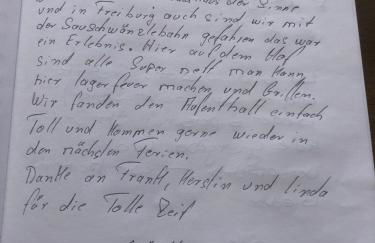 der Sinne
und in Freiburg auch sind wir mit
der Sauschwänzlebahn gefahren das war
ein Erlebnis. Hier auf dem Hof
sind alle Super nett man kann
hier lagerfeuer machen und Grillen.
Wir fanden den Aufenthalt einfach
Toll und kommen gerne wieder in
den nächsten Ferien.
Danke an Frank, Kerstin und linda
für die Tolle Zeit